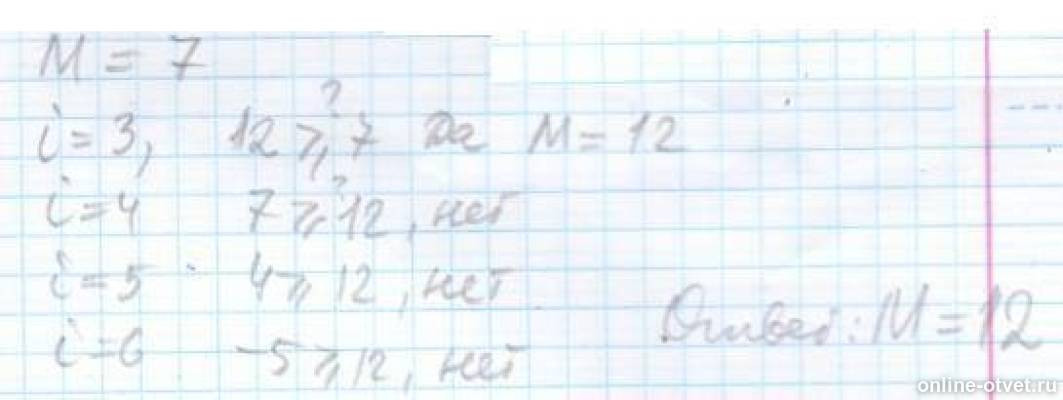 M = 7
i = 3, 12 ⩾ 7 ? Да M = 12
i = 4 7 ⩾ 12 ?, нет
i = 5 4 ⩾ 12, нет
i = 6 -5 ⩾ 12, нет
Ответ: M = 12
online-otvet.ru